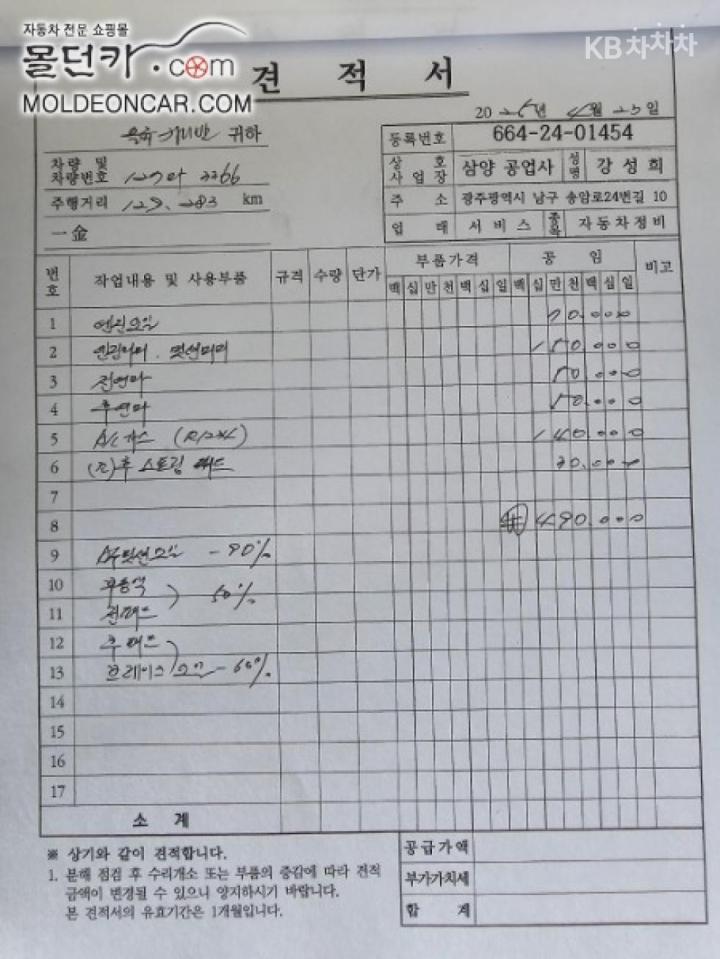 자동차 전문 쇼핑몰
몰던카.com
MOLDEONCAR.COM
KB차차차
견 적 서
2025년 4월 23일
귀하
등록번호 664-24-01454
차량 및 차량번호 127마 2266
상호 사업장 삼양 공업사 성명 강성희
주행거리 129.283 km
주소 광주광역시 남구 송암로24번길 10
一金
업태 서비스 종목 자동차정비
번호 작업내용 및 사용부품 규격 수량 단가 부품가격 공임 비고
백 십 만 천 백 십 일 백 십 만 천 백 십 일
1 엔진오일 70.000
2 150.000
3 50.000
4 50.000
5 A/C 가스 140.000
6 30.000
7
8 ₩ 490.000
9 - 90%
10 부동액
11 50%
12
13 - 60%
14
15
16
17
소 계
※ 상기와 같이 견적합니다.
1. 분해 점검 후 수리개소 또는 부품의 증감에 따라 견적
금액이 변경될 수 있으니 양지하시기 바랍니다.
본 견적서의 유효기간은 1개월입니다.
공급가액
부가가치세
합 계